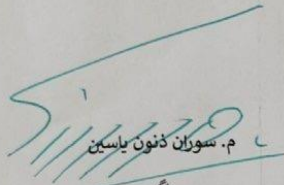 م. سوران ذنون ياسين